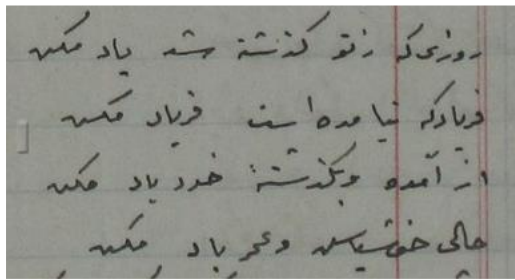 روزی که ز تو گذشته شد یاد مکن
فریاد که نیامده است فریاد مکن
از آمده و بگذشتهٔ خود یاد مکن
حالی خوش باش و عمر باد مکن